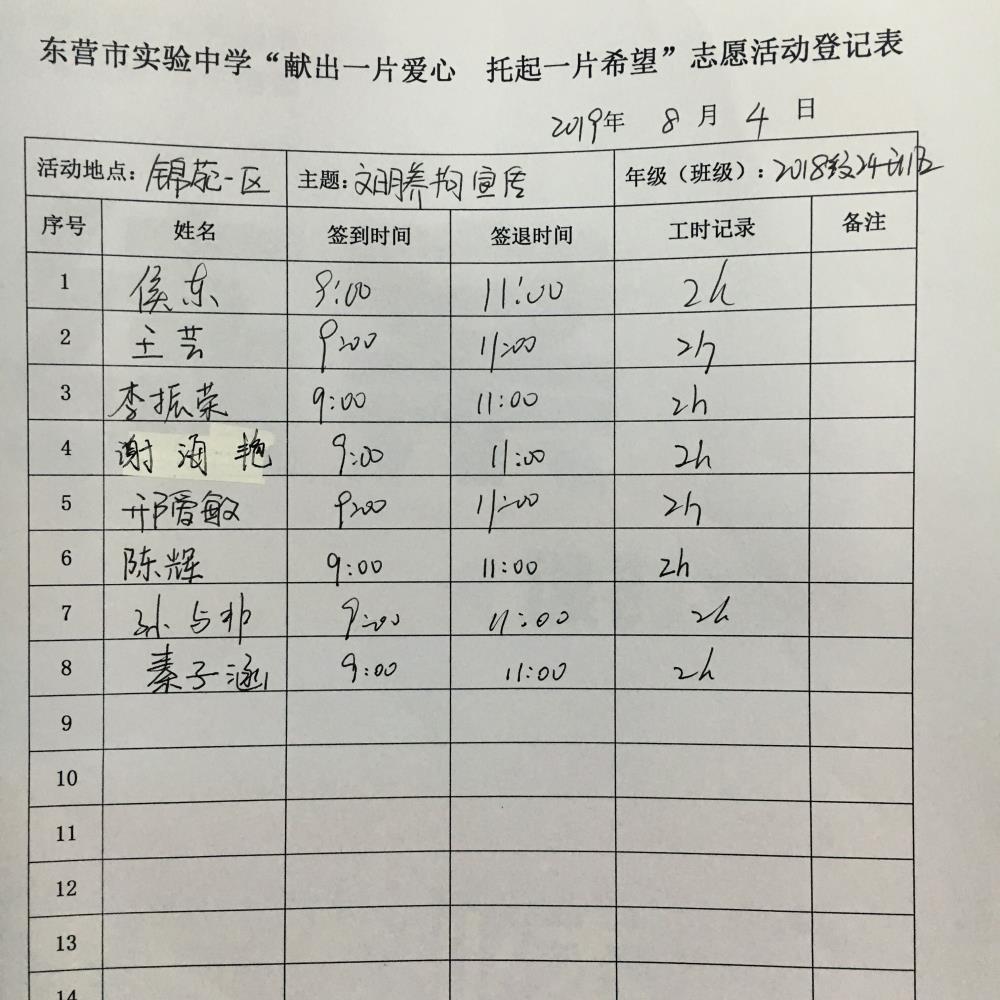 东营市实验中学“献出一片爱心 托起一片希望”志愿活动登记表
2019年 8 月 4 日
活动地点：锦苑一区 主题：文明养狗宣传 年级（班级）：2018级24班
序号 姓名 签到时间 签退时间 工时记录 备注
1 侯东 9:00 11:00 2h
2 王芸 9:00 11:00 2h
3 李振荣 9:00 11:00 2h
4 谢海艳 9:00 11:00 2h
5 邢爱敏 9:00 11:00 2h
6 陈辉 9:00 11:00 2h
7 孙与非 9:00 11:00 2h
8 秦子涵 9:00 11:00 2h
9
10
11
12
13
14